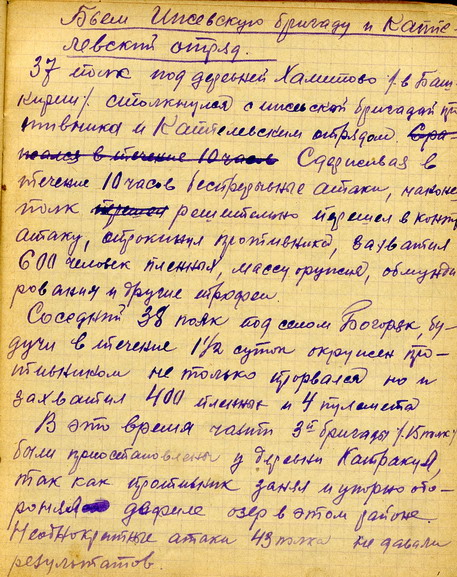 Бьем Ижевскую бригаду и Каппе-
левский отряд.
37 полк под деревней Халитово /в Баш-
кирии/ столкнулся с ижевской бригадой про
тивника и Каппелевским отрядом. Сра-
жался в течение 10 часов Сдерживая в
течение 10 часов беспрерывные атаки, наконец
полк перешел решительно перешел в контр
атаку, опрокинул противника, захватил
600 человек пленных, массу оружия, обмунди
рования и другие трофеи.
Соседний 38 полк под селом Богородск, бу-
дучи в течение 1½ суток окружен про-
тивником не только прорвался но и
захватил 400 пленных и 4 пулемета
В это время части 3й бригады /
были приостановлены у деревни
так как противник занял и упорно обо-
ронял дефиле озер в этом районе.
Неоднократные атаки 43 полка не давали
результатов.